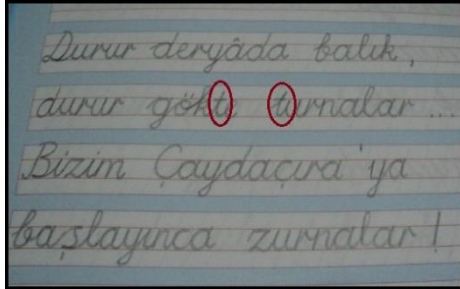 Durur deryâda balık,
durur gökte turnalar ...
Bizim Çaydaçıra'ya
başlayınca zurnalar!